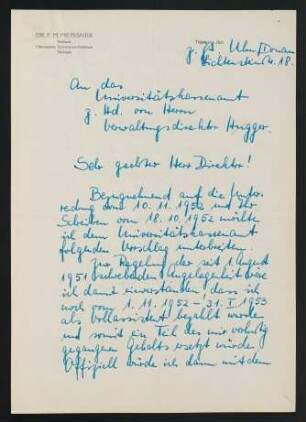 z. Zt. Ulm/Donau
An das
Universitätskassenamt
z. Hd. von Herrn
Verwaltungsdirektor Hugger.
Sehr geehrter Herr Direktor!
Bezugnehmend auf die Unter-
redung vom 10. 11. 1952 und Ihr
Schreiben vom 18. 10. 1952 möchte
ich dem Universitätskassenamt
folgenden Vorschlag unterbreiten.
Zur Regelung der seit 1. August
1951 schwebenden Angelegenheit wäre
ich damit einverstanden, dass ich
noch vom 1. 11. 1952 – 31. I. 1953
als Vollassistent bezahlt werde
und somit ein Teil des mir verlustig
gegangenen Gehalts ersetzt würde.
Offiziell würde ich dann mit dem